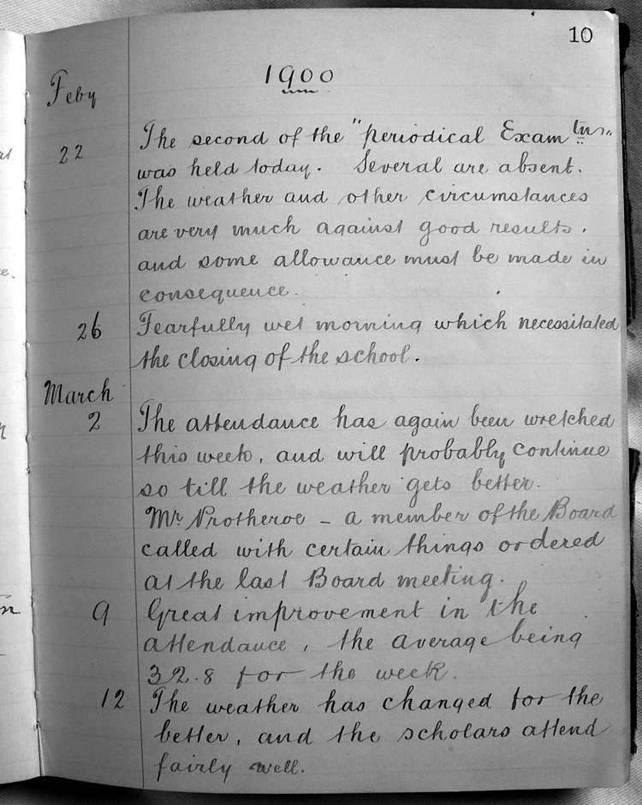 10
1900
Feby
22 The second of the "periodical Examtns"
was held today. Several are absent.
The weather and other circumstances
are very much against good results,
and some allowance must be made in
consequence.
26 Fearfully wet morning which necessitated
the closing of the school.
March
2 The attendance has again been wretched
this week, and will probably continue
so till the weather gets better.
Mr Protheroe - a member of the Board
called with certain things ordered
at the last Board meeting.
9 Great improvement in the
attendance, the average being
32.8 for the week.
12 The weather has changed for the
better, and the scholars attend
fairly well.